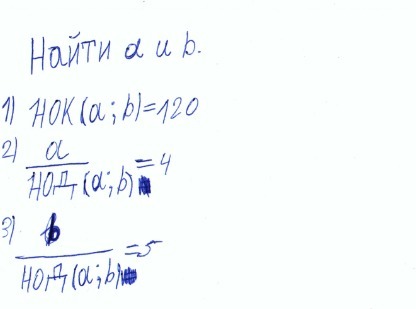 Найти a и b.
1) НОК(a; b)=120
2) a/НОД(a; b) = 4
3) b/НОД(a; b) = 5